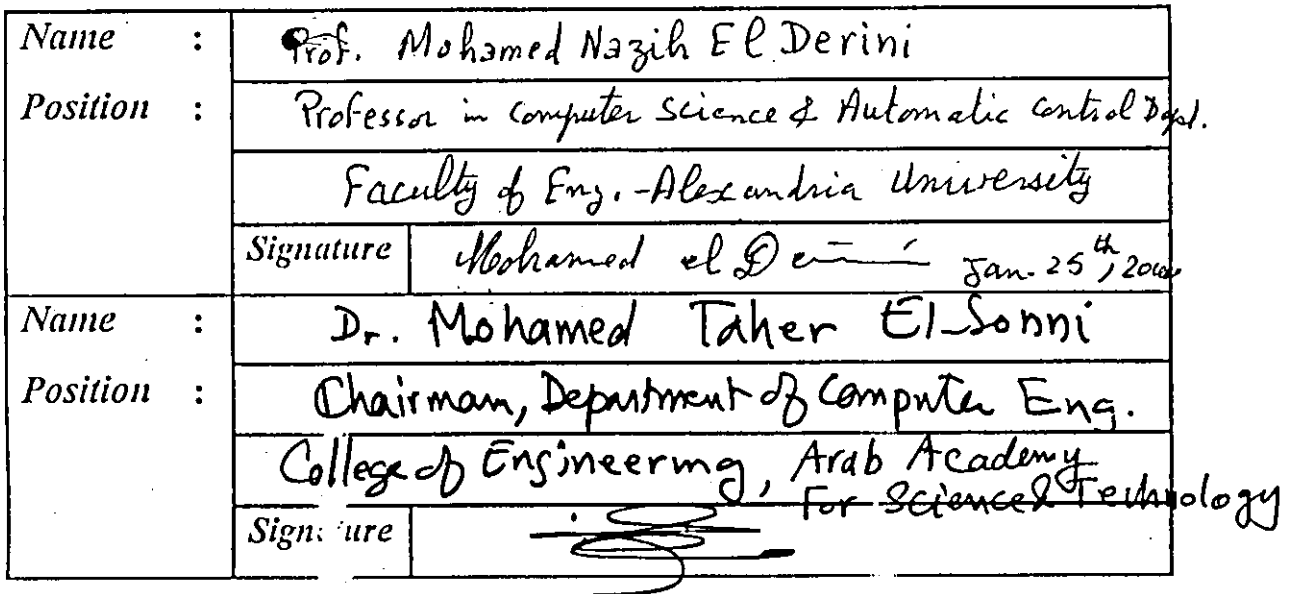 Name : Prof. Mohamed Nazih El Derini
Position : Professor in Computer Science & Automatic Control Dept.
Faculty of Eng. - Alexandria University
Signature Mohamed el Jan. 25th,
Name : Dr. Mohamed Taher El-Sonni
Position : Chairman, Department of Computer Eng.
College of Engineering, Arab Academy
For Science & Technology
Signature